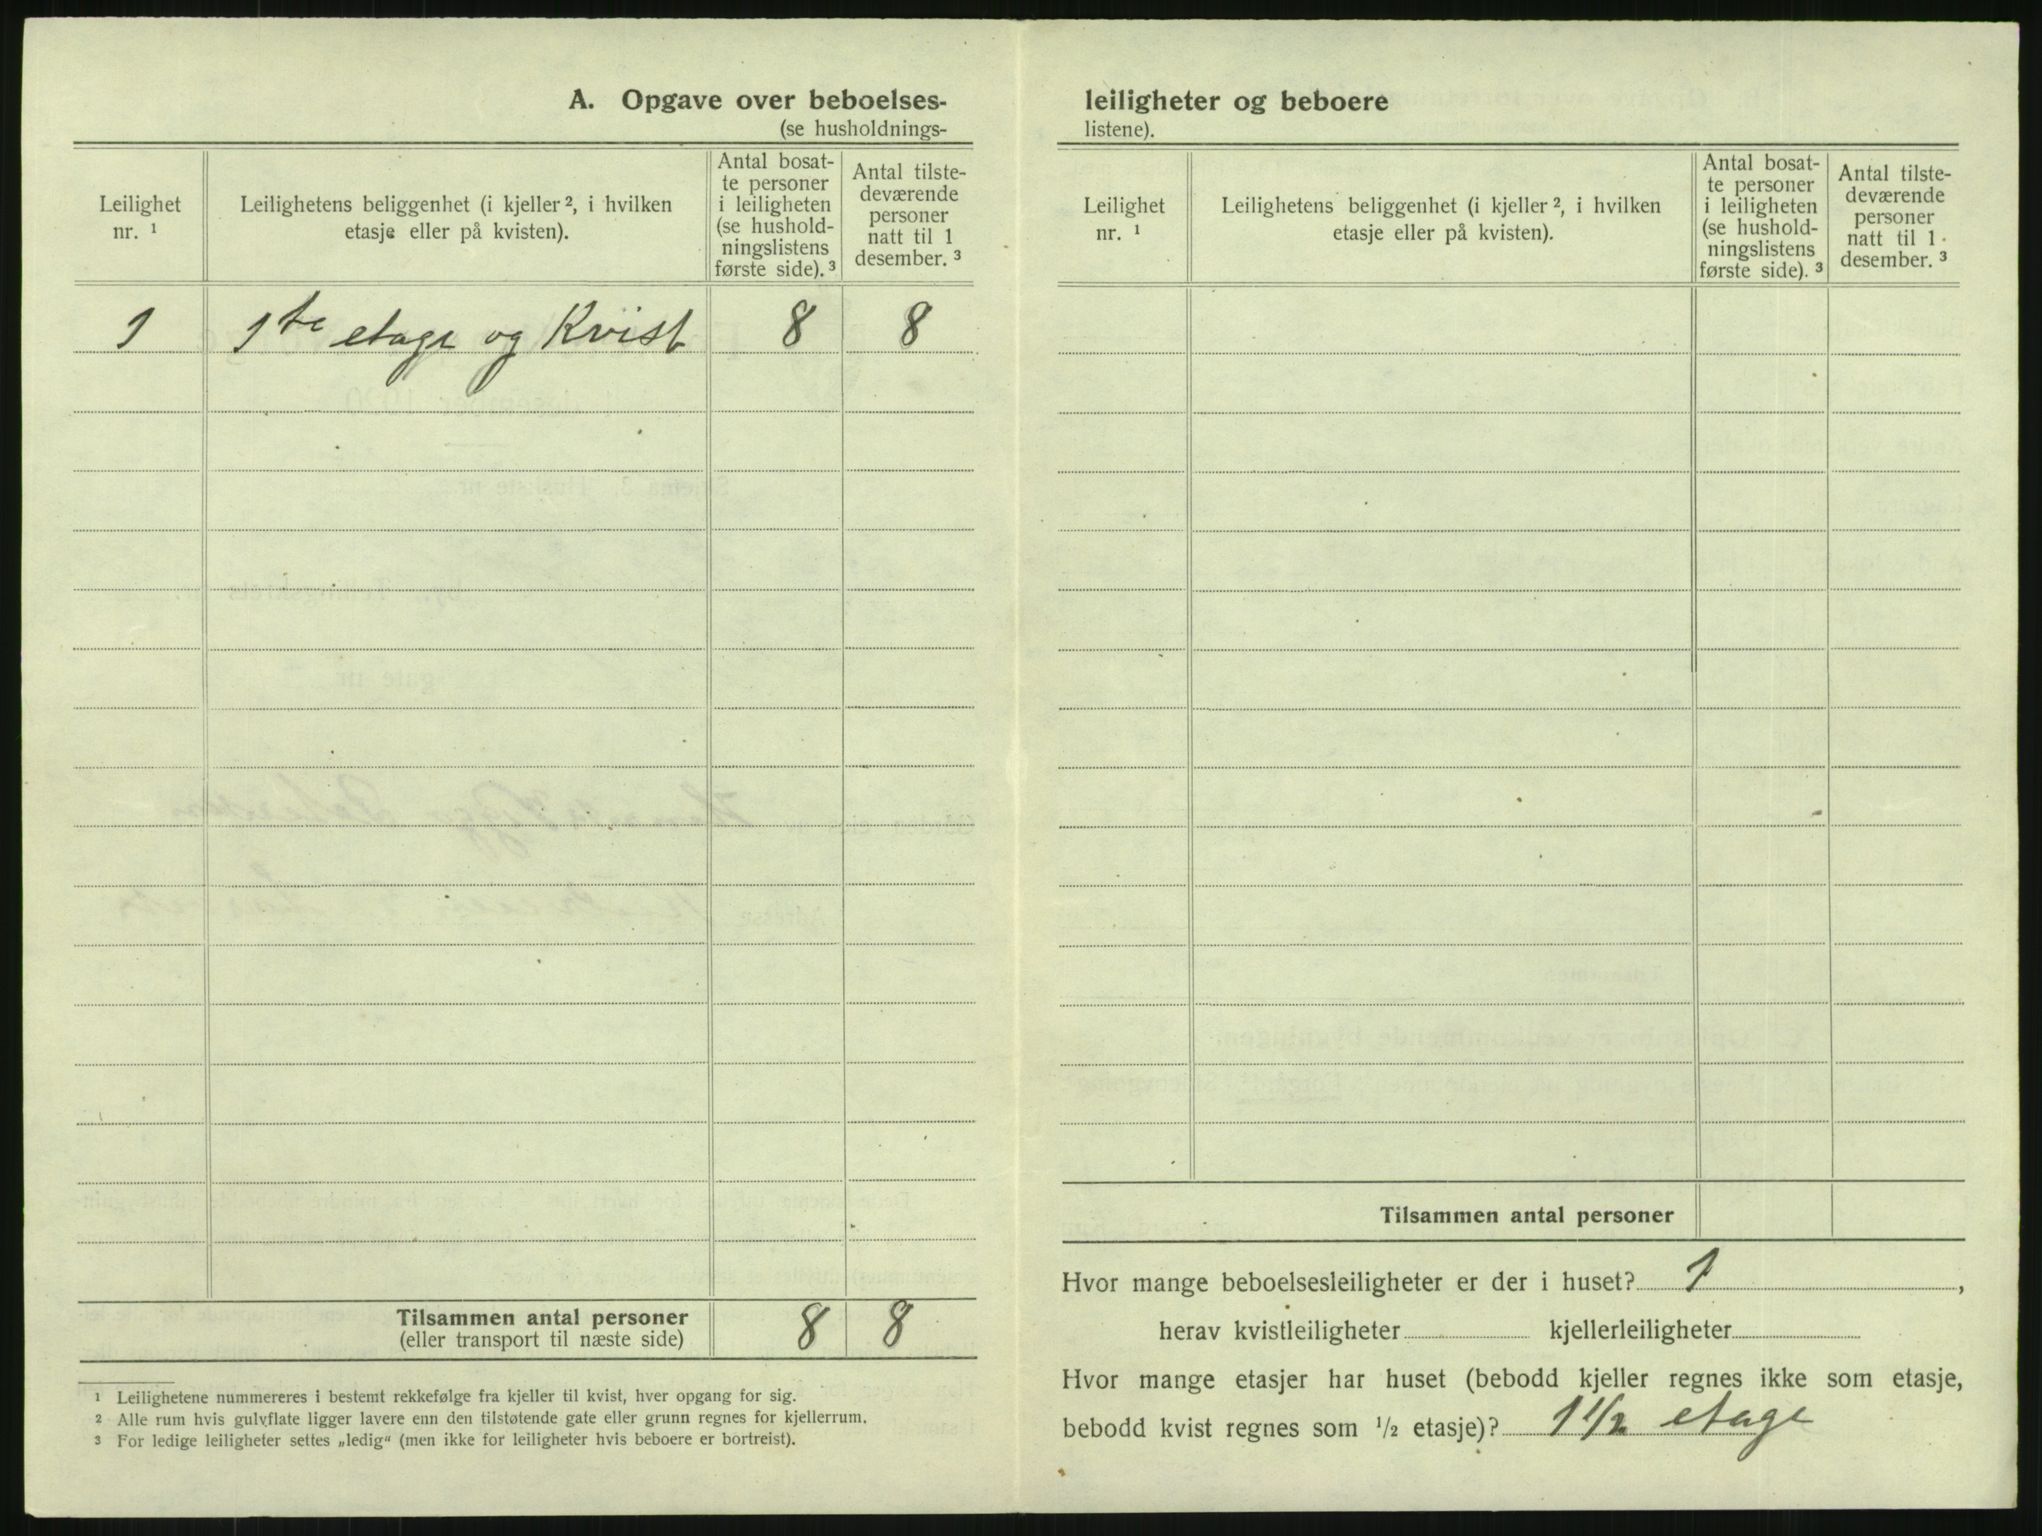 A. Opgave over beboelses-
(se husholdnings-
Leilighet
nr. 1
Leilighetens beliggenhet (i kjeller 2, i hvilken
etasje eller på kvisten).
Antal bosat-
te personer
i leiligheten
(se hushold-
ningslistens
første side). 3
Antal tilste-
deværende
personer
natt til 1
desember. 3
1 1ste etage og Kvist 8 8
Tilsammen antal personer 8 8
(eller transport til næste side)
1 Leilighetene nummereres i bestemt rekkefølge fra kjeller til kvist, hver opgang for sig.
2 Alle rum hvis gulvflate ligger lavere enn den tilstøtende gate eller grunn regnes for kjellerrum.
3 For ledige leiligheter settes „ledig“ (men ikke for leiligheter hvis beboere er bortreist).
leiligheter og beboere
listene).
Leilighet
nr. 1
Leilighetens beliggenhet (i kjeller 2, i hvilken
etasje eller på kvisten).
Antal bosat-
te personer
i leiligheten
(se hushold-
ningslistens
første side). 3
Antal tilste-
deværende
personer
natt til 1
desember. 3
Tilsammen antal personer
Hvor mange beboelsesleiligheter er der i huset? 1,
herav kvistleiligheter kjellerleiligheter
Hvor mange etasjer har huset (bebodd kjeller regnes ikke som etasje,
bebodd kvist regnes som 1/2 etasje)? 1 1/2 etage